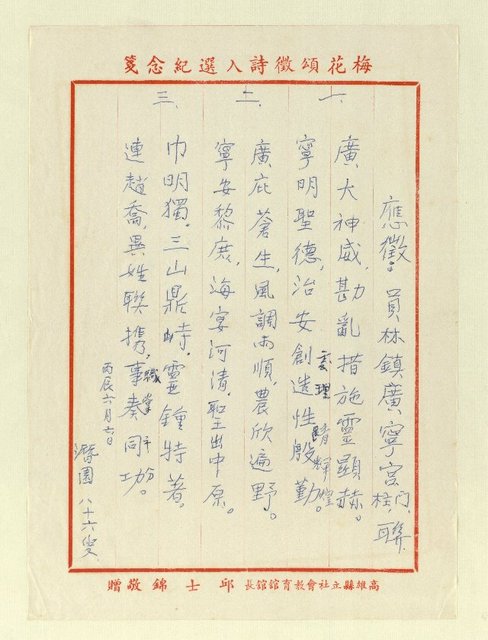 梅花頌徵詩入選紀念箋
應徵：員林鎮廣寧宮門、柱、聯
一、
廣大神威，勘亂措施靈顯赫。
寧明聖德，治安創造性殷勤。
玄理
輝煌
二、
廣庇蒼生，風調雨順，農欣遍野。
寧安黎庶，海宴河清，聖出中原。
三、
巾明獨。三山鼎峙，靈鍾特著。
連趙喬，異姓聯携，事奏同功。
職掌平分
丙辰六月六日
潛園 八十六叟
高雄縣立社會教育館館長 邱士錦敬贈